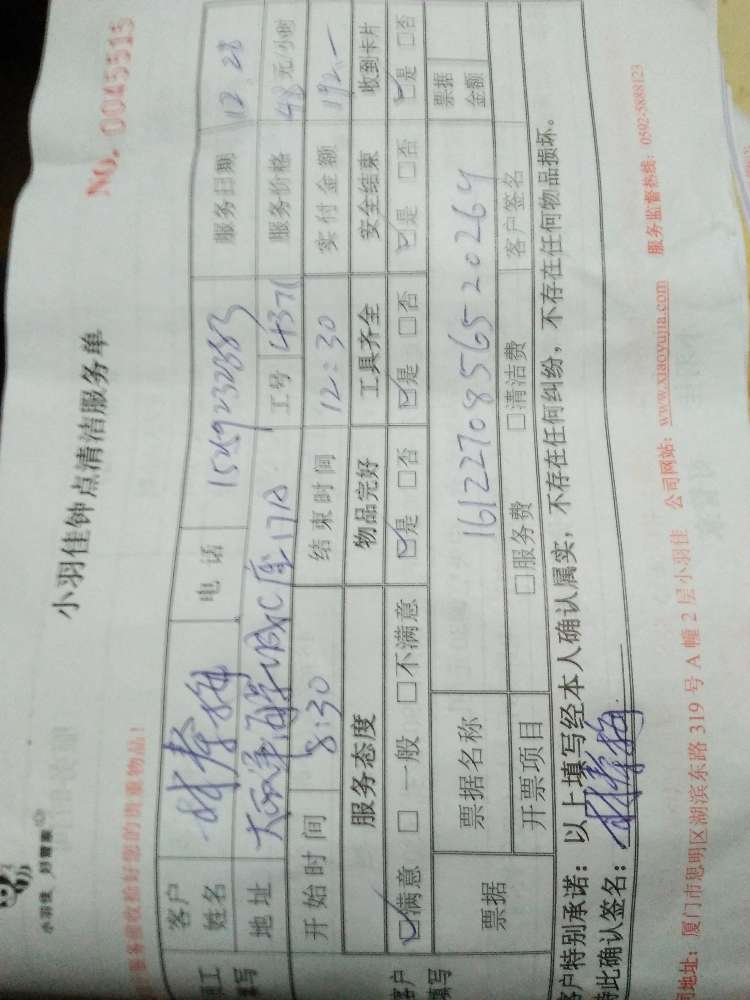 小羽佳 好管家
小羽佳钟点清洁服务单
NO. 0045515
服务前收捡好您的贵重物品!
客户姓名 林春梅 电话 15259232383 服务日期 12.28
地址 C座17D 工号 4371 服务价格 48元/小时
开始时间 8:30 结束时间 12:30 实付金额 192.—
服务态度 物品完好 工具齐全 安全结束 收到卡片
☑满意 □一般 □不满意 ☑是 □否 ☑是 □否 ☑是 □否 ☑是 □否
票据 票据名称 1612270856520264 票据金额
开票项目 □服务费 □清洁费 客户签名
客户特别承诺:以上填写经本人确认属实,不存在任何纠纷,不存在任何物品损坏。
特此确认签名:林春梅
地址:厦门市思明区湖滨东路 319 号 A 幢 2 层小羽佳 公司网站:www.xiaoyujia.com 服务监督热线:0592-5888123